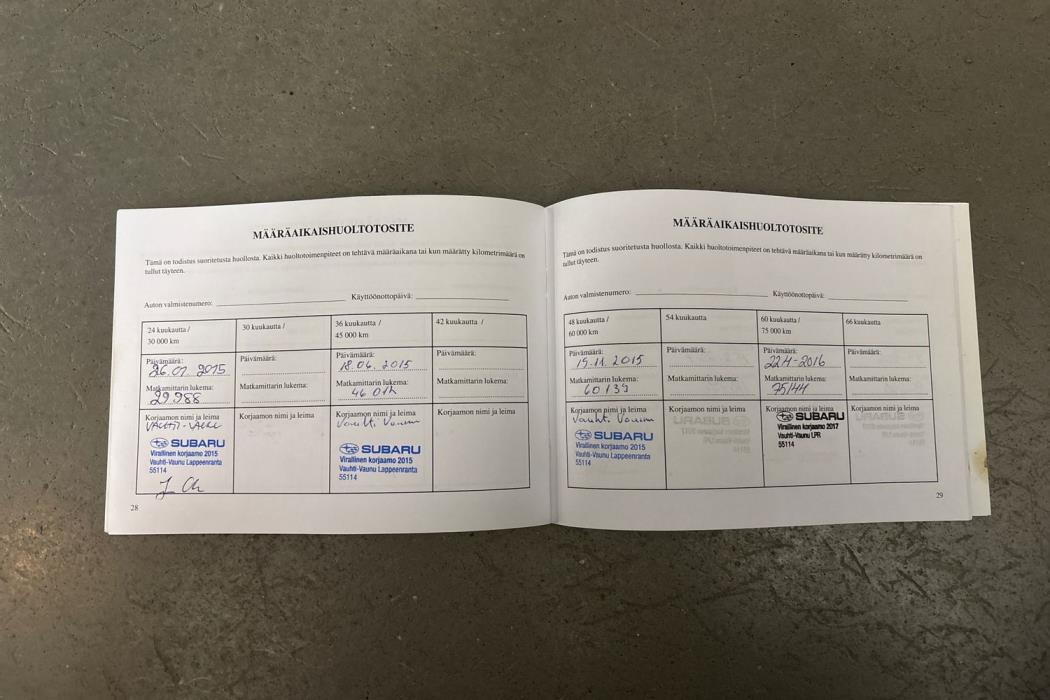 MÄÄRÄAIKAISHUOLTOTOSITE
Tämä on todistus suoritetusta huollosta. Kaikki huoltotoimenpiteet on tehtävä määräaikana tai kun määrätty kilometrimäärä on
tullut täyteen.
Auton valmistenumero: Käyttöönottopäivä:
24 kuukautta / 30 kuukautta / 36 kuukautta / 42 kuukautta /
30 000 km 45 000 km
Päivämäärä: Päivämäärä: Päivämäärä: Päivämäärä:
26.01.2015 18.06.2015
Matkamittarin lukema: Matkamittarin lukema: Matkamittarin lukema: Matkamittarin lukema:
29988 46
Korjaamon nimi ja leima Korjaamon nimi ja leima Korjaamon nimi ja leima Korjaamon nimi ja leima
SUBARU SUBARU
Virallinen korjaamo 2015 Virallinen korjaamo 2015
Vauhti-Vaunu Lappeenranta Vauhti-Vaunu Lappeenranta
55114 55114
28
MÄÄRÄAIKAISHUOLTOTOSITE
Tämä on todistus suoritetusta huollosta. Kaikki huoltotoimenpiteet on tehtävä määräaikana tai kun määrätty kilometrimäärä on
tullut täyteen.
Auton valmistenumero: Käyttöönottopäivä:
48 kuukautta / 54 kuukautta 60 kuukautta / 66 kuukautta
60 000 km 75 000 km
Päivämäärä: Päivämäärä: Päivämäärä: Päivämäärä:
19.11.2015 22.4-2016
Matkamittarin lukema: Matkamittarin lukema: Matkamittarin lukema: Matkamittarin lukema:
60139 75144
Korjaamon nimi ja leima Korjaamon nimi ja leima Korjaamon nimi ja leima Korjaamon nimi ja leima
Vauht. Vaunu
SUBARU SUBARU
Virallinen korjaamo 2015 Virallinen korjaamo 2017
Vauhti-Vaunu Lappeenranta Vauhti-Vaunu LPR
55114 55114
29